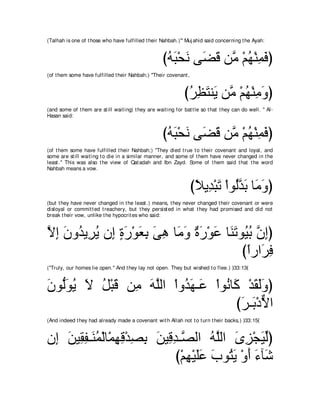 (Talhah is one of those who have fulfilled their Nahbah.)'' Mujahid said concerning the Ayah:
(فَمِنْهُمْ مَّن قَضَى نَحْبَهُ)
(of them some have fulfilled their Nahbah;) "Their covenant,
(وَمِنْهُمْ مَّن يَنتَظِرُ)
(and some of them are still waiting) they are waiting for battle so that they can do well. " Al-
Hasan said:
(فَمِنْهُمْ مَّن قَضَى نَحْبَهُ)
(of them some have fulfilled their Nahbah;) "They died true to their covenant and loyal, and
some are still waiting to die in a similar manner, and some of them have never changed in the
least.'' This was also the view of Qatadah and Ibn Zayd. Some of them said that the word
Nahbah means a vow.
(وَمَا بَدَّلُواْ تَبْدِيلاً)
(but they have never changed in the least.) means, they never changed their covenant or were
disloyal or committed treachery, but they persisted in what they had promised and did not
break their vow, unlike the hypocrites who said:
(إِنَّ بُيُوتَنَا عَوْرَةٌ وَمَا هِىَ بِعَوْرَةٍ إِن يُرِيدُونَ إِلاَّ
فِرَاراً)
("Truly, our homes lie open." And they lay not open. They but wished to flee.) )33:13(
(وَلَقَدْ كَانُواْ عَـهَدُواْ اللَّهَ مِن قَبْلُ لاَ يُوَلُّونَ
الاٌّدْبَـرَ)
(And indeed they had already made a covenant with Allah not to turn their backs,) )33:15(
(لِّيَجْزِىَ اللَّهُ الصَّـدِقِينَ بِصِدْقِهِمْ وَيُعَذِّبَ الْمُنَـفِقِينَ إِن
شَآءَ أَوْ يَتُوبَ عَلَيْهِمْ)